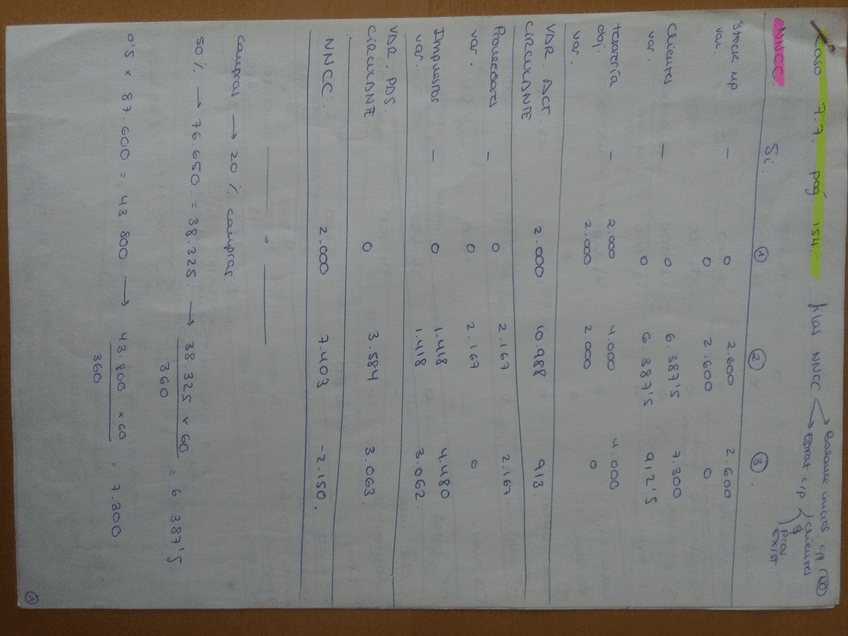 Caso 7.7. pág 154.
filas NNCC → Balance inicial c/p
→ Estrat c/p { clientes
prov
exist.
NNCC Si. ① ② ③.
Stock MP — 0 2.600 2.600
var. 0 2.600 0
Clientes — 0 6.387'5 7.300
var. 0 6.387'5 912'5
tesorería
obj. — 2.000 4.000 4.000
var. 2.000 2.000 0
VAR. ACT.
CIRCULANTE 2.000 10.988 913.
Proveedores — 0 2.167 2.167
var. 0 2.167 0
Impuestos — 0 1.418 4.480
var. 0 1.418 3.062
VAR. PAS.
CIRCULANTE 0 3.584 3.063.
NNCC. 2.000 7.403 -2.150.
compras → 20% compras
50% → 76.650 = 38.325. → 38.325 x 60 / 360 = 6.387'5
0'5 x 87.600 = 43.800 → 43.800 x 60 / 360 = 7.300
①